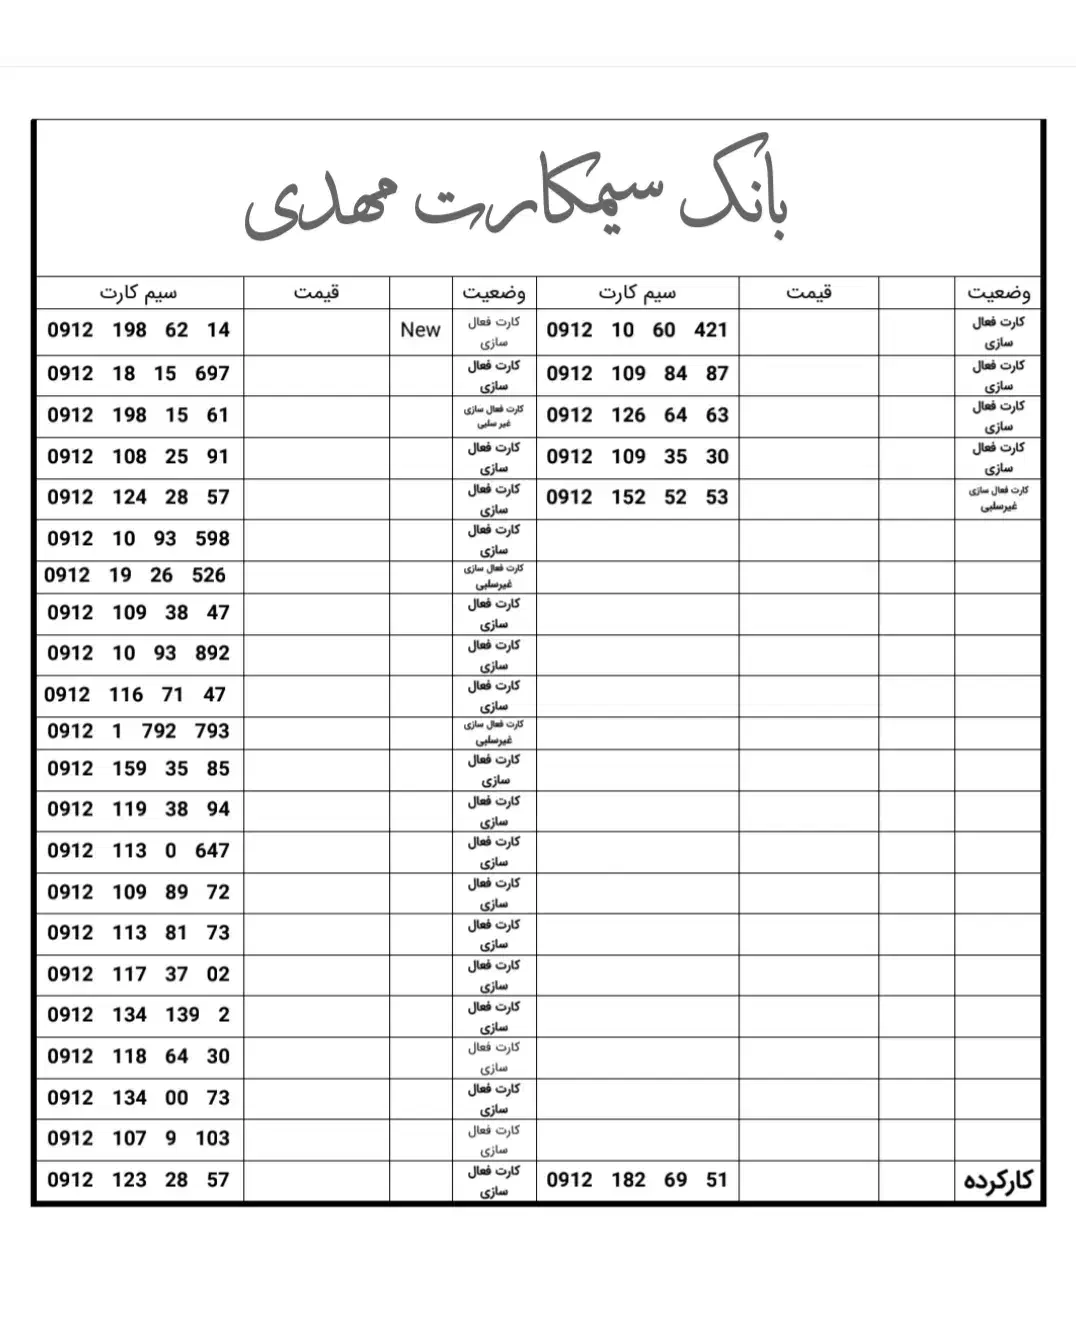 بانک سیمکارت مهدی
سیم کارت قیمت وضعیت سیم کارت قیمت وضعیت
0912 198 62 14 New کارت فعال سازی 0912 10 60 421 کارت فعال سازی
0912 18 15 697 کارت فعال سازی 0912 109 84 87 کارت فعال سازی
0912 198 15 61 کارت فعال سازی غیر سلبی 0912 126 64 63 کارت فعال سازی
0912 108 25 91 کارت فعال سازی 0912 109 35 30 کارت فعال سازی
0912 124 28 57 کارت فعال سازی 0912 152 52 53 کارت فعال سازی غیرسلبی
0912 10 93 598 کارت فعال سازی
0912 19 26 526 کارت فعال سازی غیرسلبی
0912 109 38 47 کارت فعال سازی
0912 10 93 892 کارت فعال سازی
0912 116 71 47 کارت فعال سازی
0912 1 792 793 کارت فعال سازی غیرسلبی
0912 159 35 85 کارت فعال سازی
0912 119 38 94 کارت فعال سازی
0912 113 0 647 کارت فعال سازی
0912 109 89 72 کارت فعال سازی
0912 113 81 73 کارت فعال سازی
0912 117 37 02 کارت فعال سازی
0912 134 139 2 کارت فعال سازی
0912 118 64 30 کارت فعال سازی
0912 134 00 73 کارت فعال سازی
0912 107 9 103 کارت فعال سازی
0912 123 28 57 کارت فعال سازی 0912 182 69 51 کارکرده